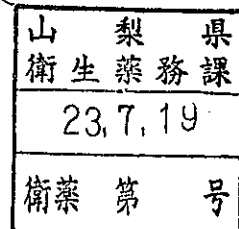 山梨県
衛生薬務課
23,7,19
衛薬第 号